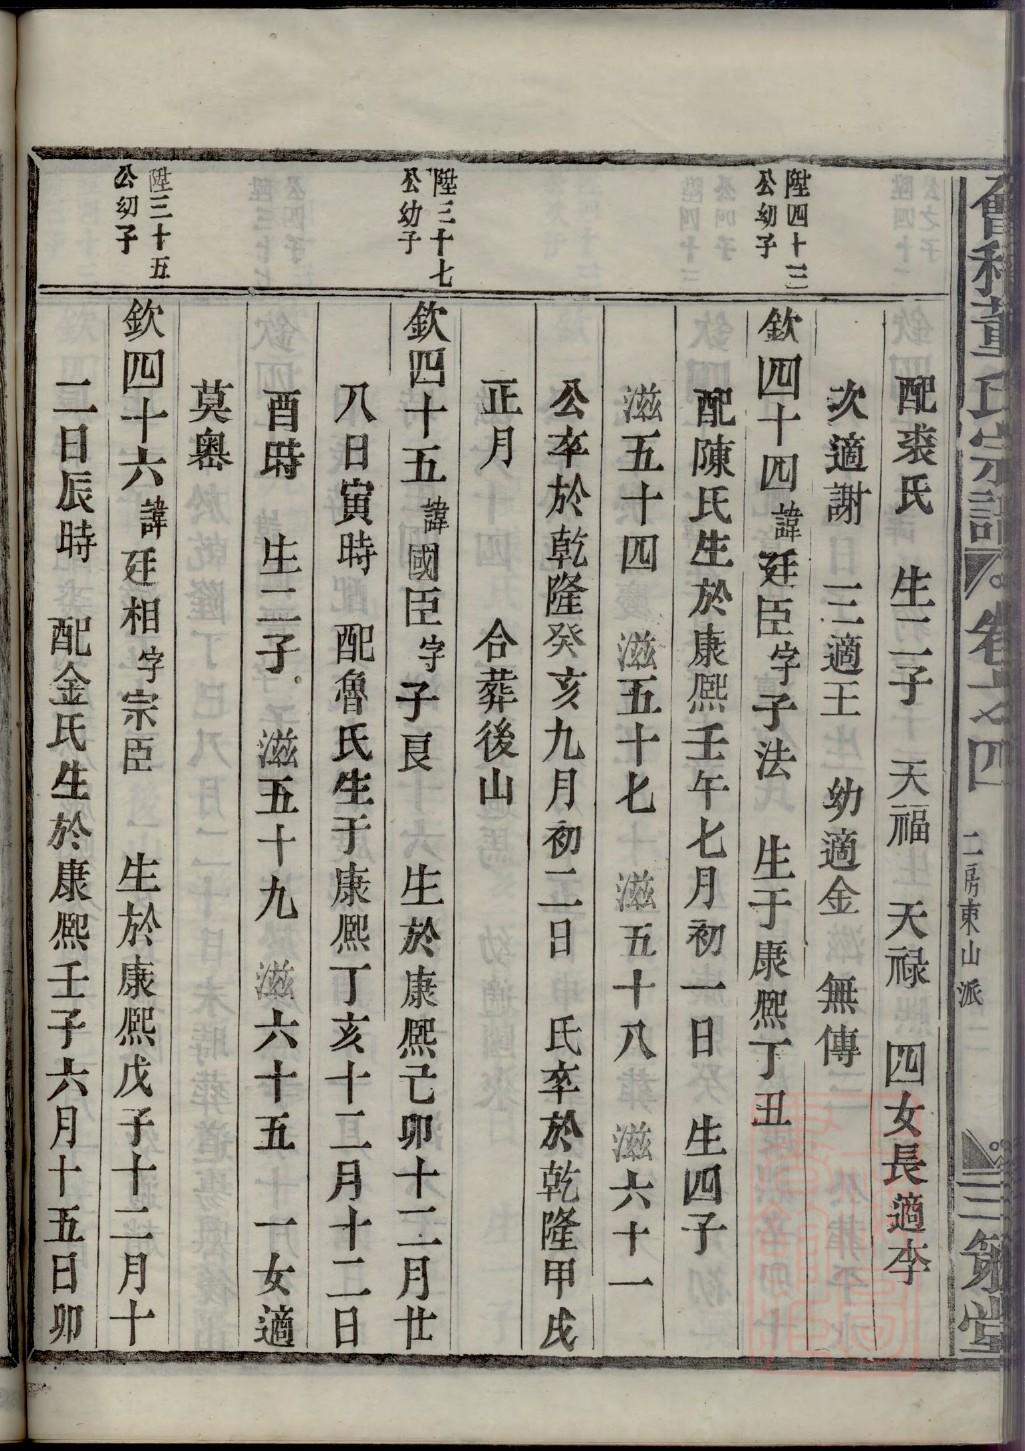 會稽董氏宗譜 卷之四 二房東山派 三策堂
配裘氏 生二子 天福 天祿 四女長適李
次適謝 三適王 幼適金 無傳
陞四十三
公幼子
欽四十四諱廷臣字子法 生于康熙丁丑
配陳氏生於康熙壬午七月初一日 生四子
滋五十四 滋五十七 滋五十八葬 滋六十一
公卒於乾隆癸亥九月初二日 氏卒於乾隆甲戌
正月 合葬後山
陞三十七
公幼子
欽四十五諱國臣字子良 生於康熙己卯十二月廿
八日寅時 配魯氏生于康熙丁亥十二月十二日
酉時 生二子 滋五十九 滋六十五 一女適
莫嶴
陞三十五
公幼子
欽四十六諱廷相字宗臣 生於康熙戊子十二月十
二日辰時 配金氏生於康熙壬子六月十五日卯